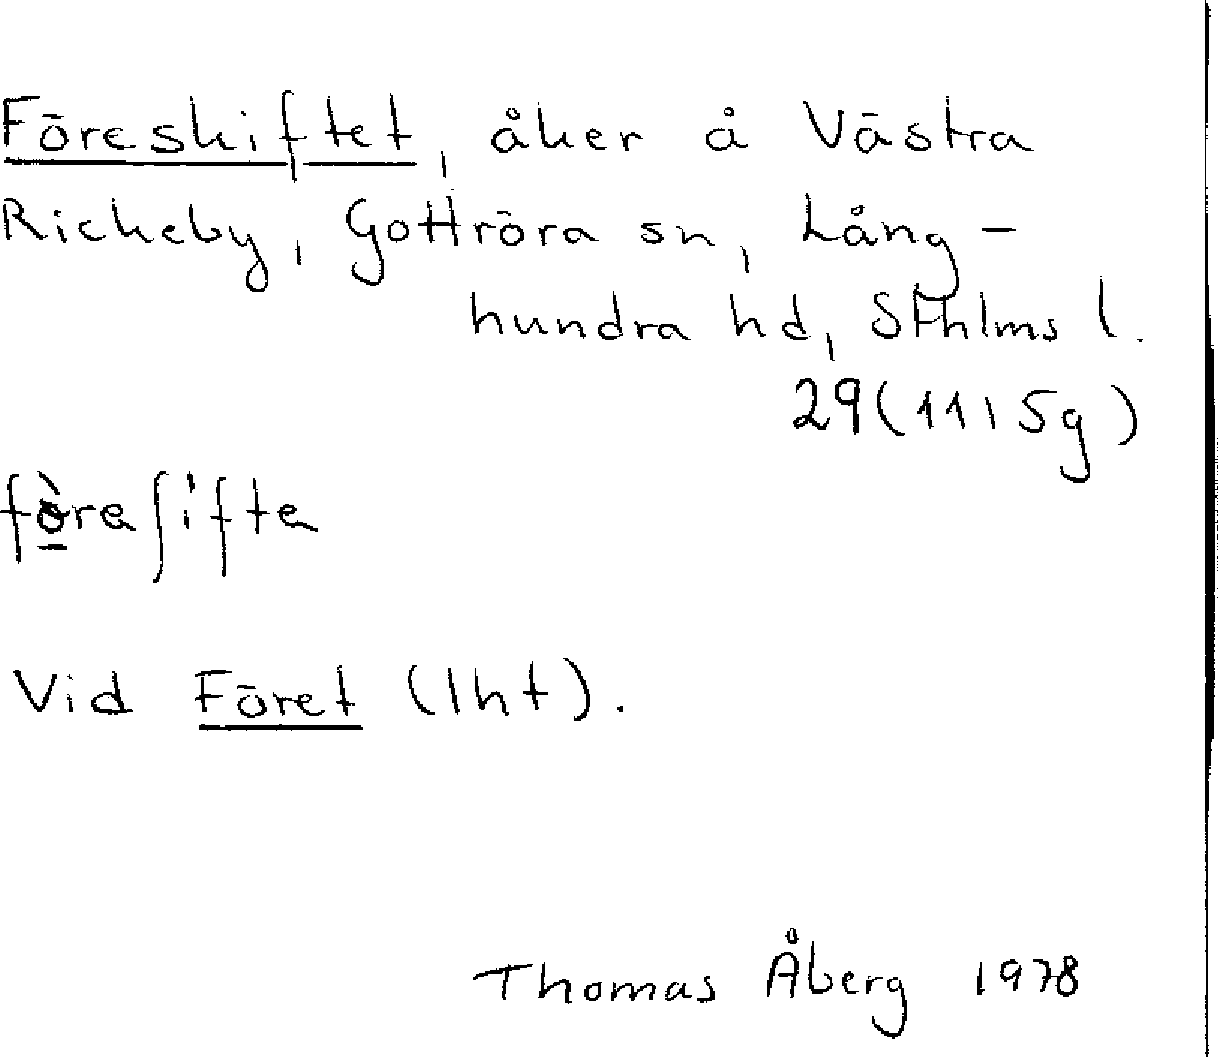 Föreskiftet, åker å Västra
Rickeby, Gottröra sn, Lång-
hundra hd, Sthlms l.
29(11i5g)
fö̀raſifta
Vid Föret (lht).
Thomas Åberg 1978